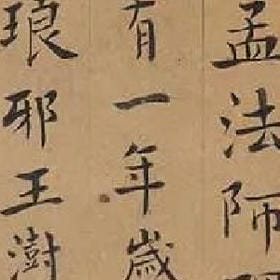 孟法師
有一年歲
琅邪王澍